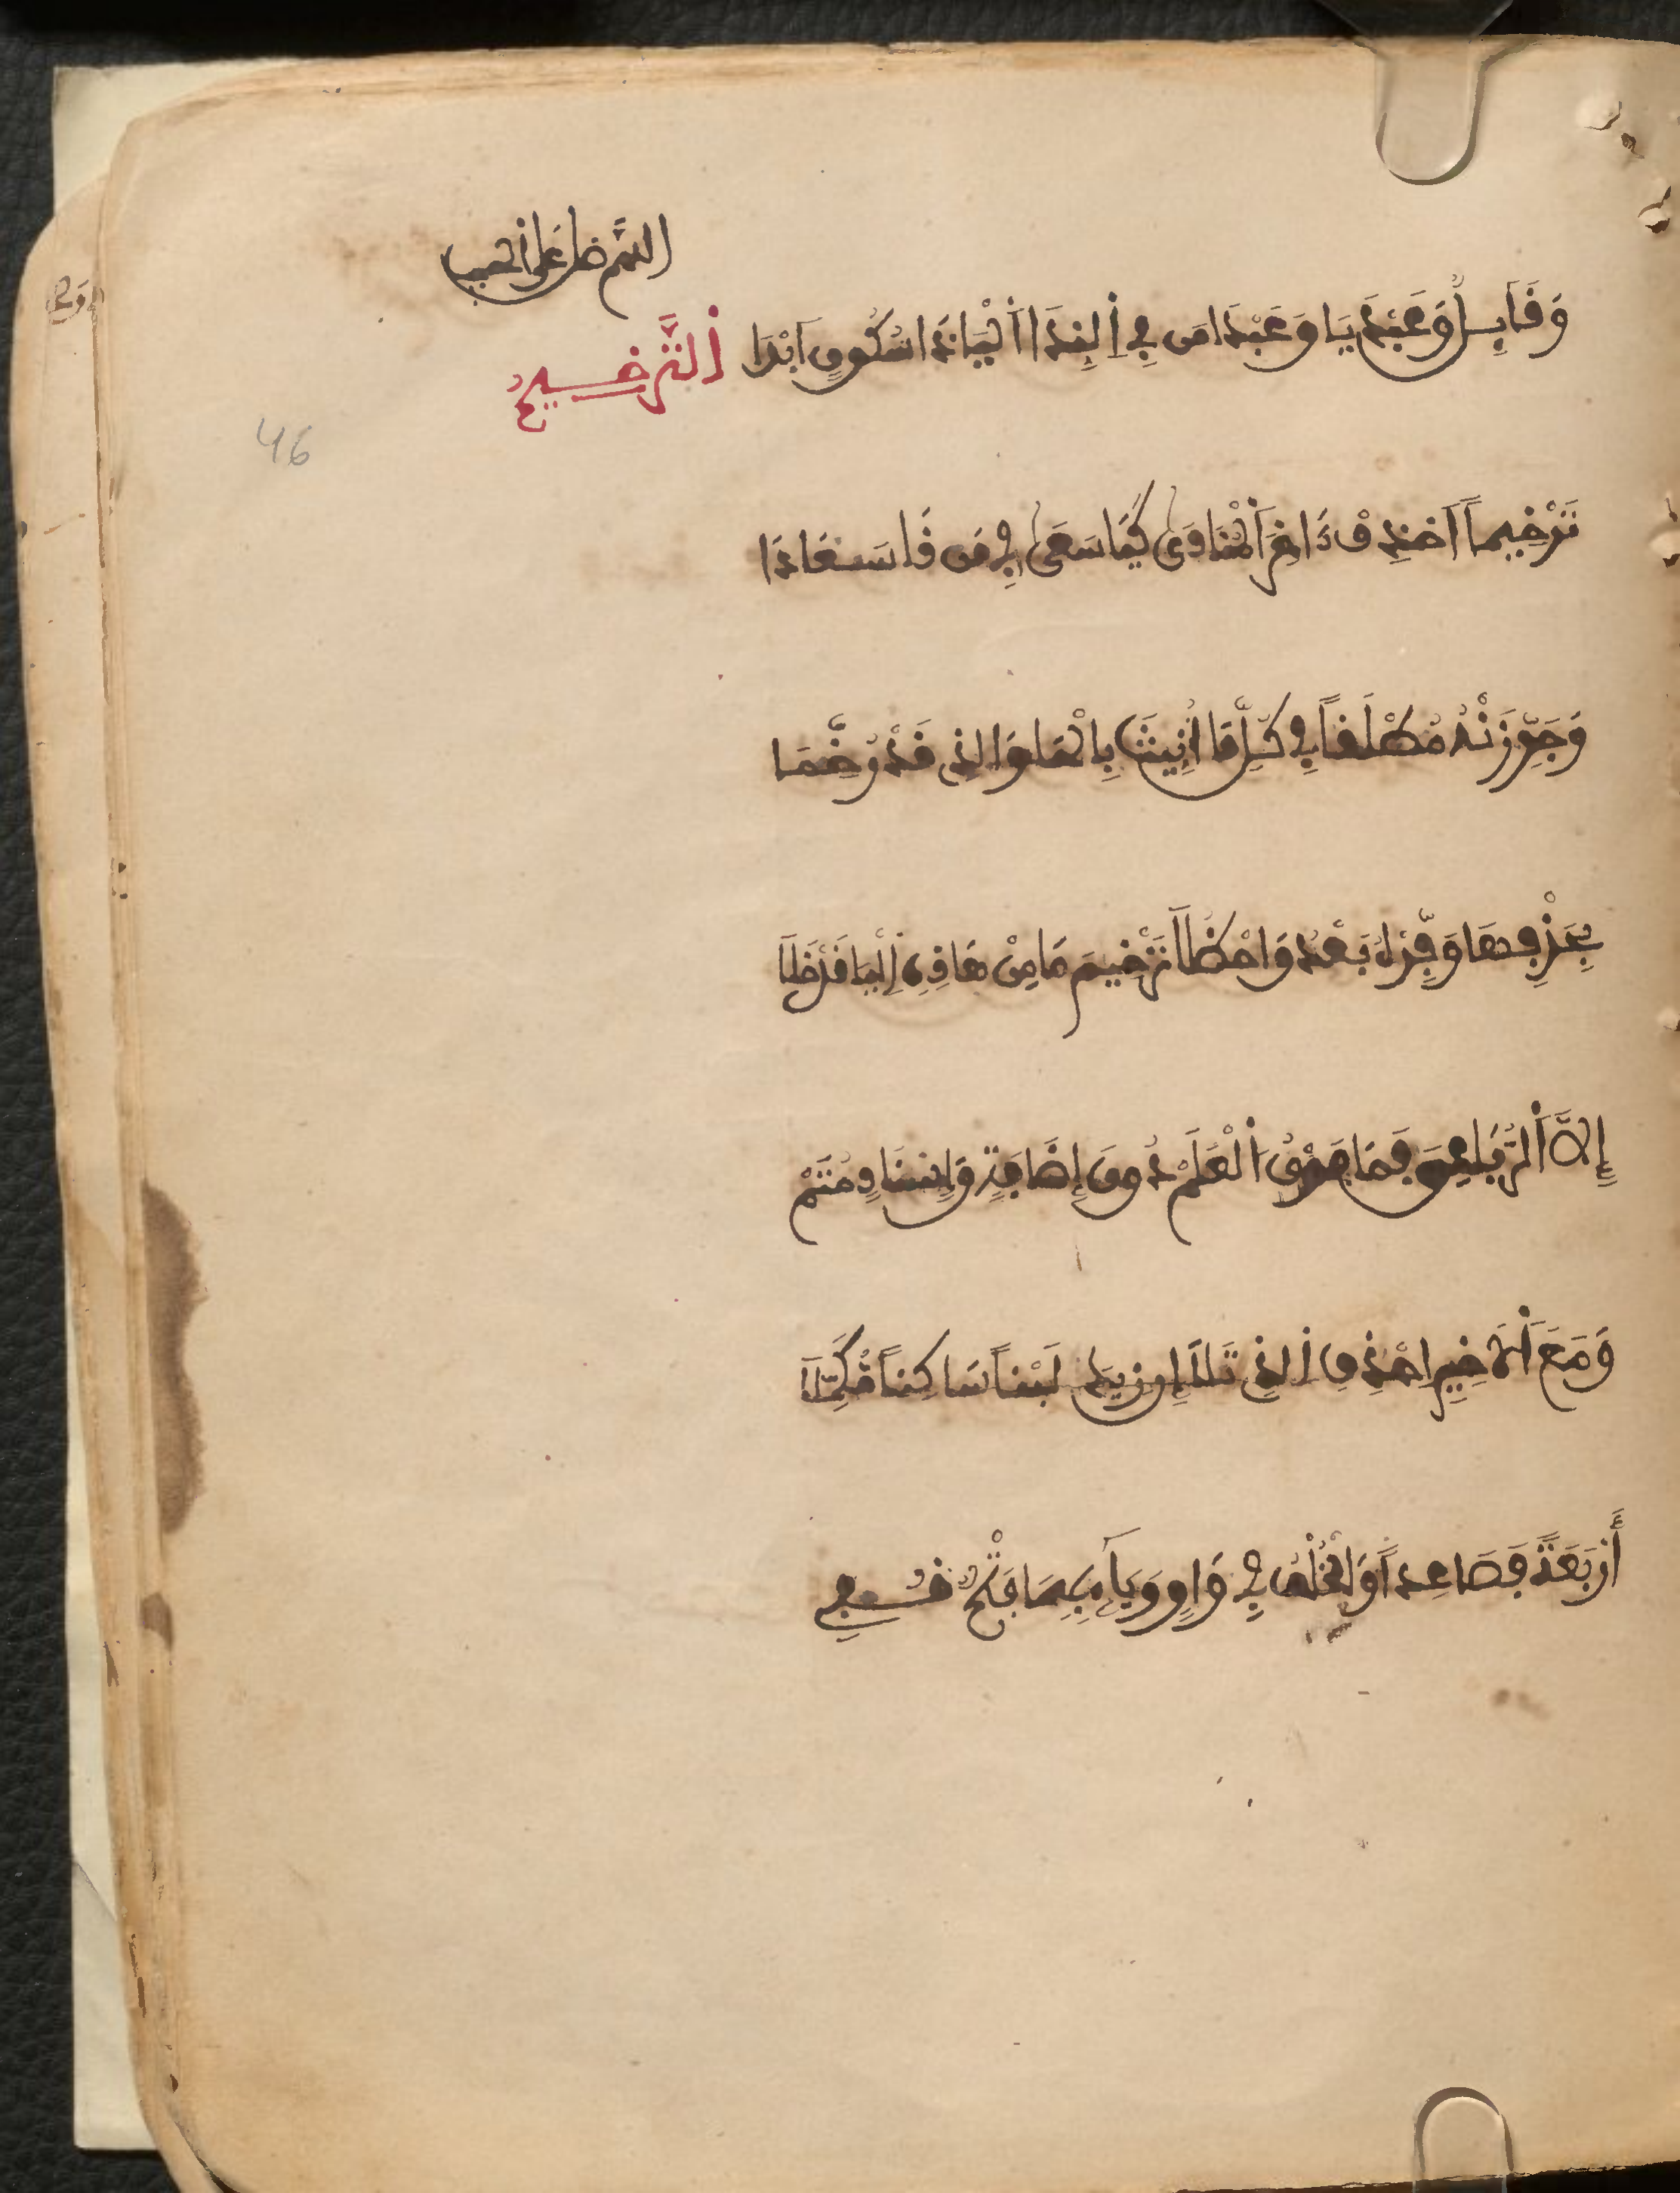 اللهم صل على الحبيب
وَقَائِلٌ وَعَبْدِيَا وَعَبْدَا مَن فِي اَلنِّدَا اَلْيَا ذَا سُكُونٍ اَبْدَا اَلتَّرْخِيمُ
46
تَرْخِيماً اَحْذِفْ ءَاخِرَ اَلْمُنَادَى كَيَا سُعَى فِي مَن دَعَا سُعَادَا
وَجَوِّزَنْهُ مُطْلَقاً فِي كُلِّ مَا أُنِّثَ بِالْهَا وَالذِي قَدْ رُخِّمَا
بِحَذْفِهَا وَفِّرْهُ بَعْدُ وَاحْظُلَا تَرْخِيمَ مَا مِنْ هَذِهِ اِلْهَا قَدْ خَلَا
إِلاَّ اَلرُّبَاعِيَّ فَمَا فَوْقُ اَلْعَلَمْ دُونَ إِضَافَةٍ وَإِسْنَادٍ مُتَمْ
وَمَعَ اَلَاخِيرِ احْذِفِ اِلذِي تَلَا إِن زِيدَ لَيْناً سَاكِناً مُكَمِّلَا
أَرْبَعَةً فَصَاعِداً وَالْخُلْفُ فِي وَاوٍ وَيَاءٍ بِهِمَا فَتْحٌ قُفِي